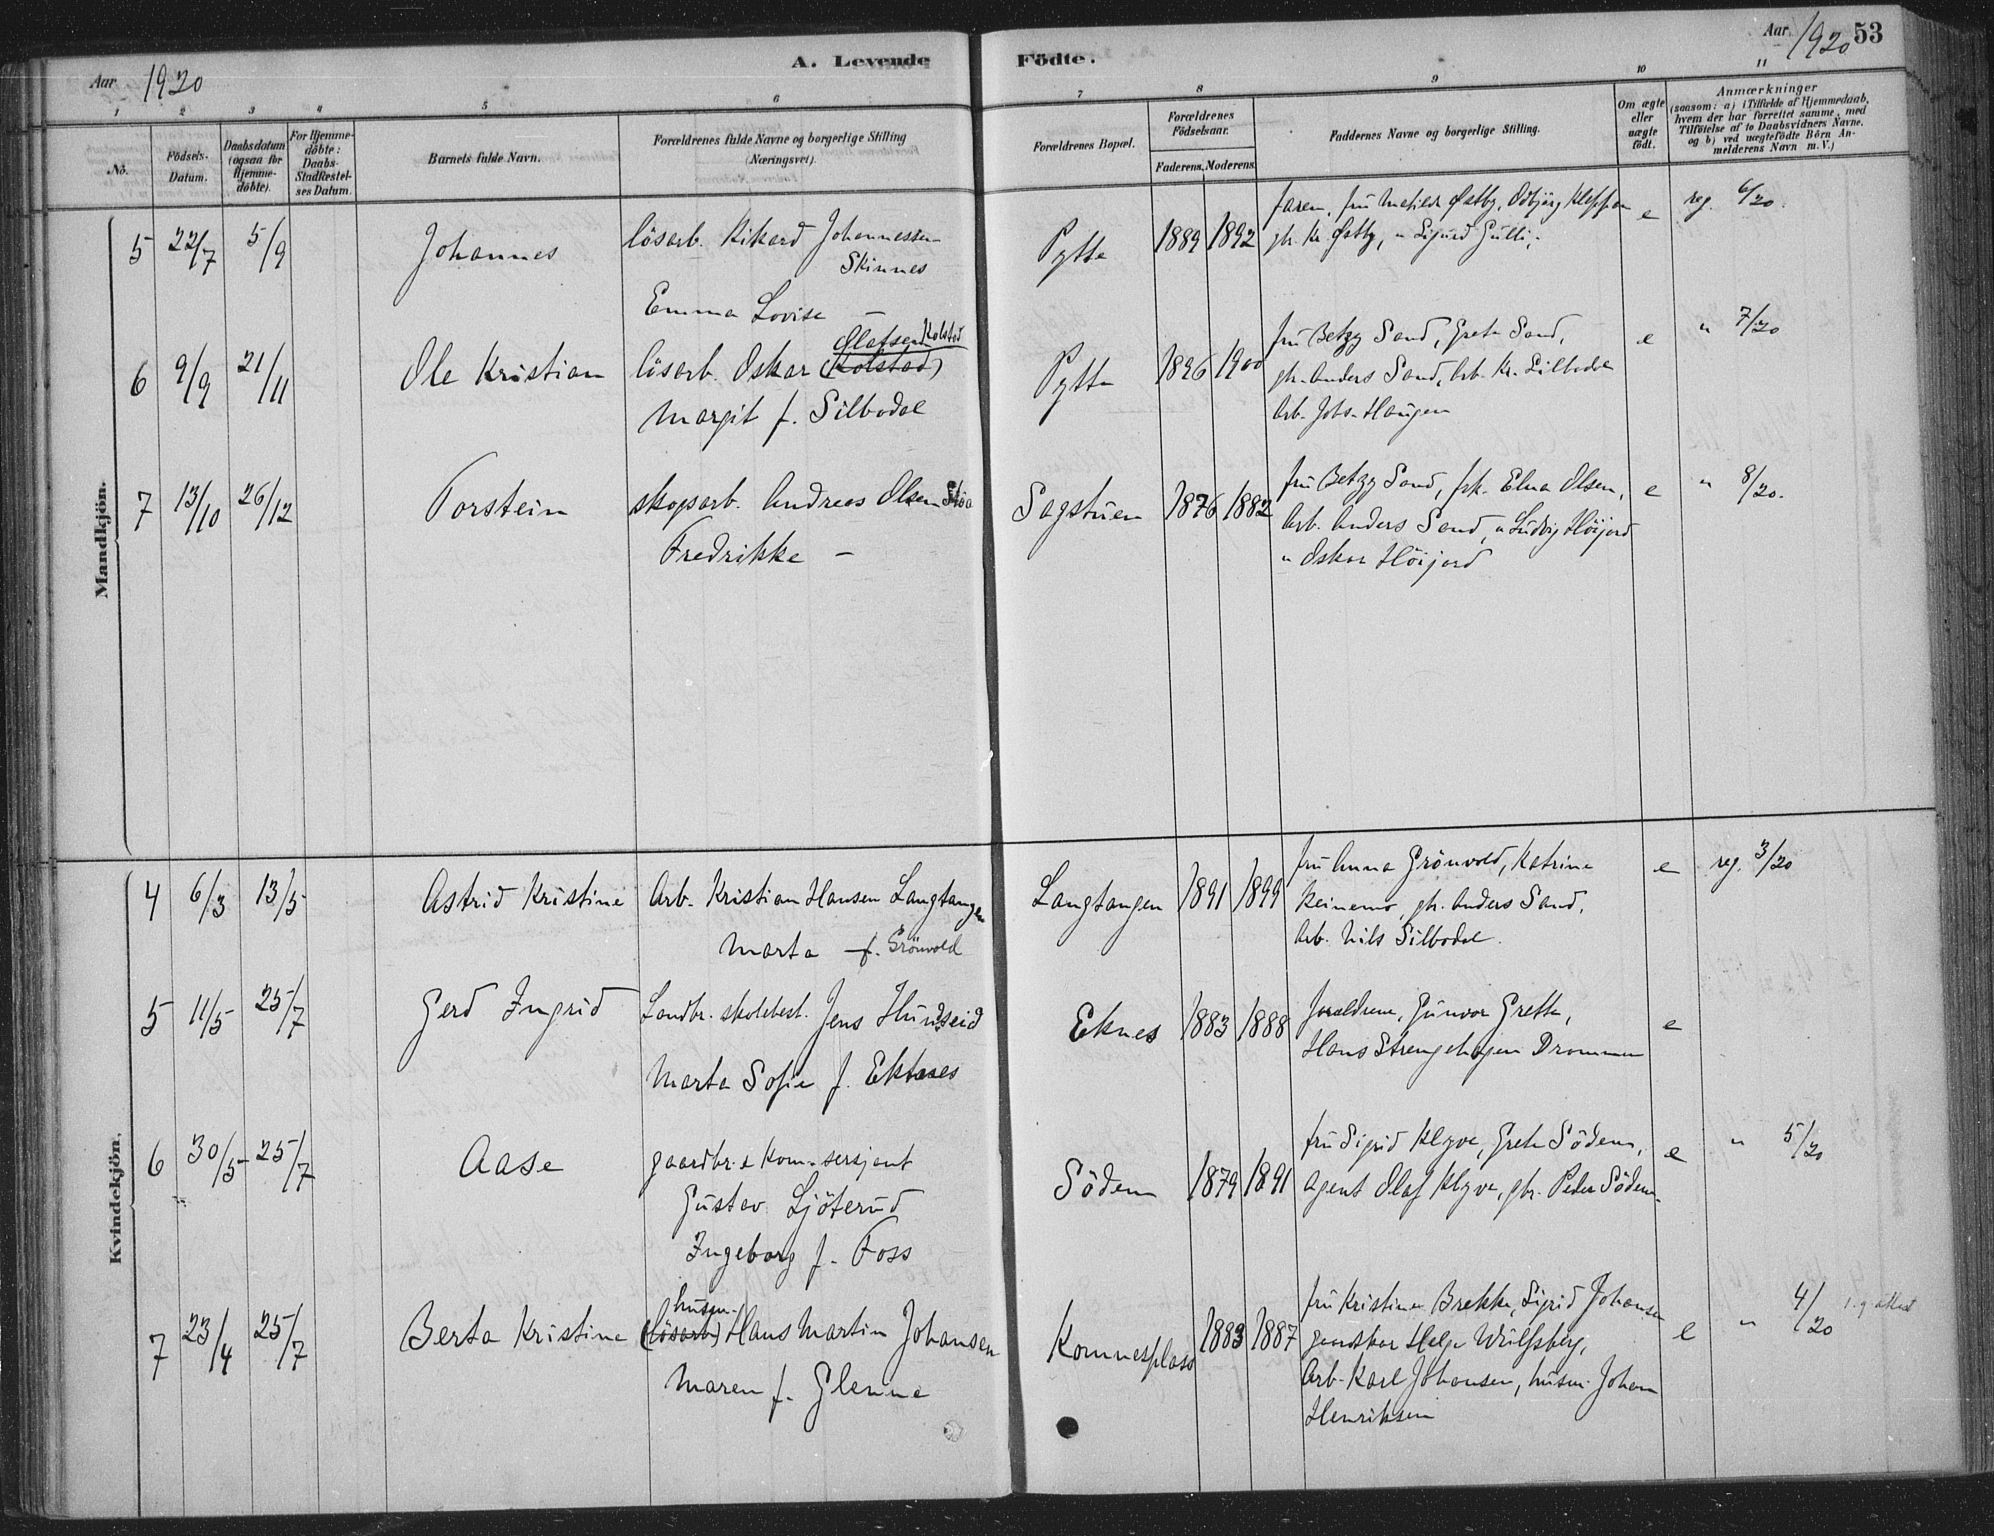 Aar 1920
A. Levende
Födte.
Aar 1920
53
1 2 3 4 5 6 7 8 9 10 11
No.
Födsels-Datum.
Daabsdatum (ogsaa for Hjemme-döbte).
For Hjemme-döbte: Daabs-Stadfestel-ses Datum.
Barnets fulde Navn.
Forældrenes fulde Navne og borgerlige Stilling
(Næringsvei).
Forældrenes Bopæl.
Forældrenes Födselsaar.
Faderens. Moderens.
Faddernes Navne og borgerlige Stilling.
Om ægte eller uægte født.
Anmærkninger
(saasom: a) i Tilfælde af Hjemmedaab, hvem der har forrettet samme, med Tilföielse af to Daabsvidners Navne. og b) ved uægtefödte Börn An-melderens Navn m. V.)
Mandkjön.
5 22/7 5/9 Johannes lösarb. Rikard Johannessen
Skinnes
Emma Lovise —
Pytte 1889 1892 faren, fru Matilde Østby, Odbjörg Kleppen
gbr. Kr. Østby, " Sigurd Gulli,
e reg. 6/20.
6 9/9 21/11 Ole Kristian lösarb. Oskar (Kolstad)
Olafsen Kolstad
Margit f. Silbodal
Pytte 1896 1900 fru Betzy Sand, Grete Sand,
gbr. Anders Sand, Arb. Kr. Silbodal
Arb. Johs. Haugen
e " 7/20
7 13/10 26/12 Torstein skogsarb. Andreas Olsen Stöa
Fredrikke —
Sagstuen 1876 1882 fru Betzy Sand, frk. Elna Olsen,
Arb. Anders Sand, " Ludvig Höijord
" Oskar Höijord
e " 8/20.
Kvindekjön.
4 6/3 13/5 Astrid Kristine Arb. Kristian Hansen Langtangen
Marta — f. Grönvold
Langtangen 1891 1899 fru Anna Grönvold, Katrine
Reinemo, gbr. Anders Sand,
Arb. Nils Silbodal.
e reg. 3/20
5 11/5 25/7 Gerd Ingrid Landbr. skolebest. Jens Hundseid
Marta Sofie f. Eknes
Eknes 1883 1888 forældrene, Gunvor Grette,
Hans Strengehagen Drammen
e
6 30/5 25/7 Aase gaardbr. & kom.-sersjant
Gustav Ljöterud
Ingeborg f. Foss
Södem 1879 1891 fru Sigrid Klyve, Grete Södem,
Agent Olaf Klyve, gbr. Peder Södem.
e " 5/20
7 23/4 25/7 Berta Kristine (lösarb) Hans Martin Johansen
husm.
Maren f. Glenne
Komnesplass 1883 1887 fru Kristine Brekke, Sigrid Johansen
Helge Wulfsberg,
Arb. Karl Johansen, husm. Johan
Henriksen
e " 4/20